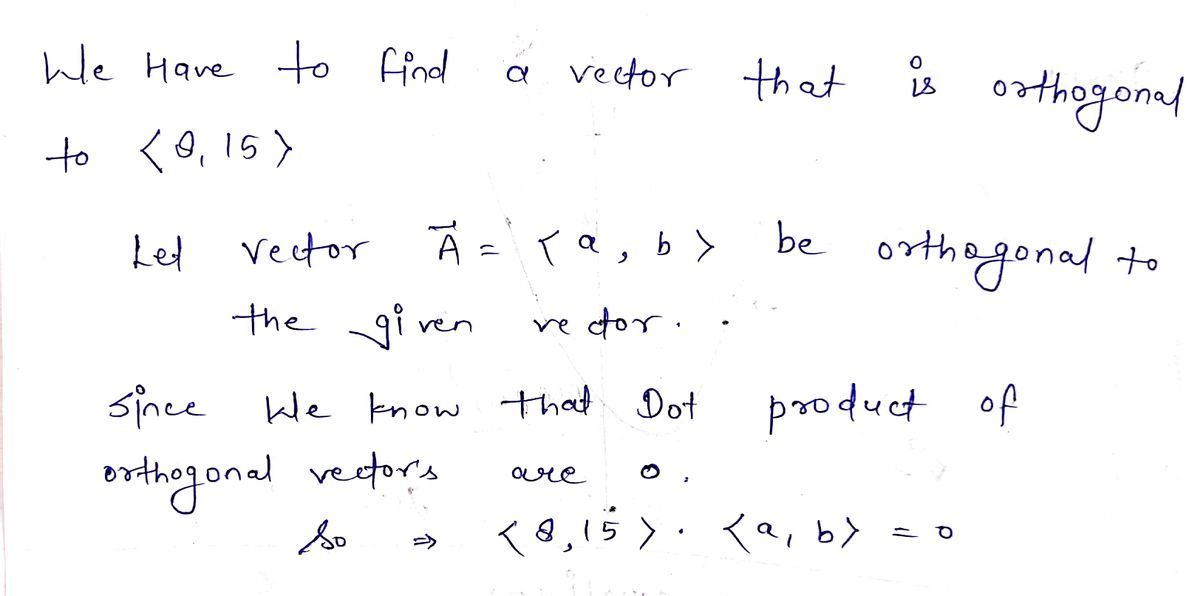 We Have to find a vector that is orthogonal
to <8, 15>
Let vector A⃗ = <a, b> be orthogonal to
the given vector.
Since We know that Dot product of
orthogonal vector's are 0.
So ⇒ <8, 15> · <a, b> = 0